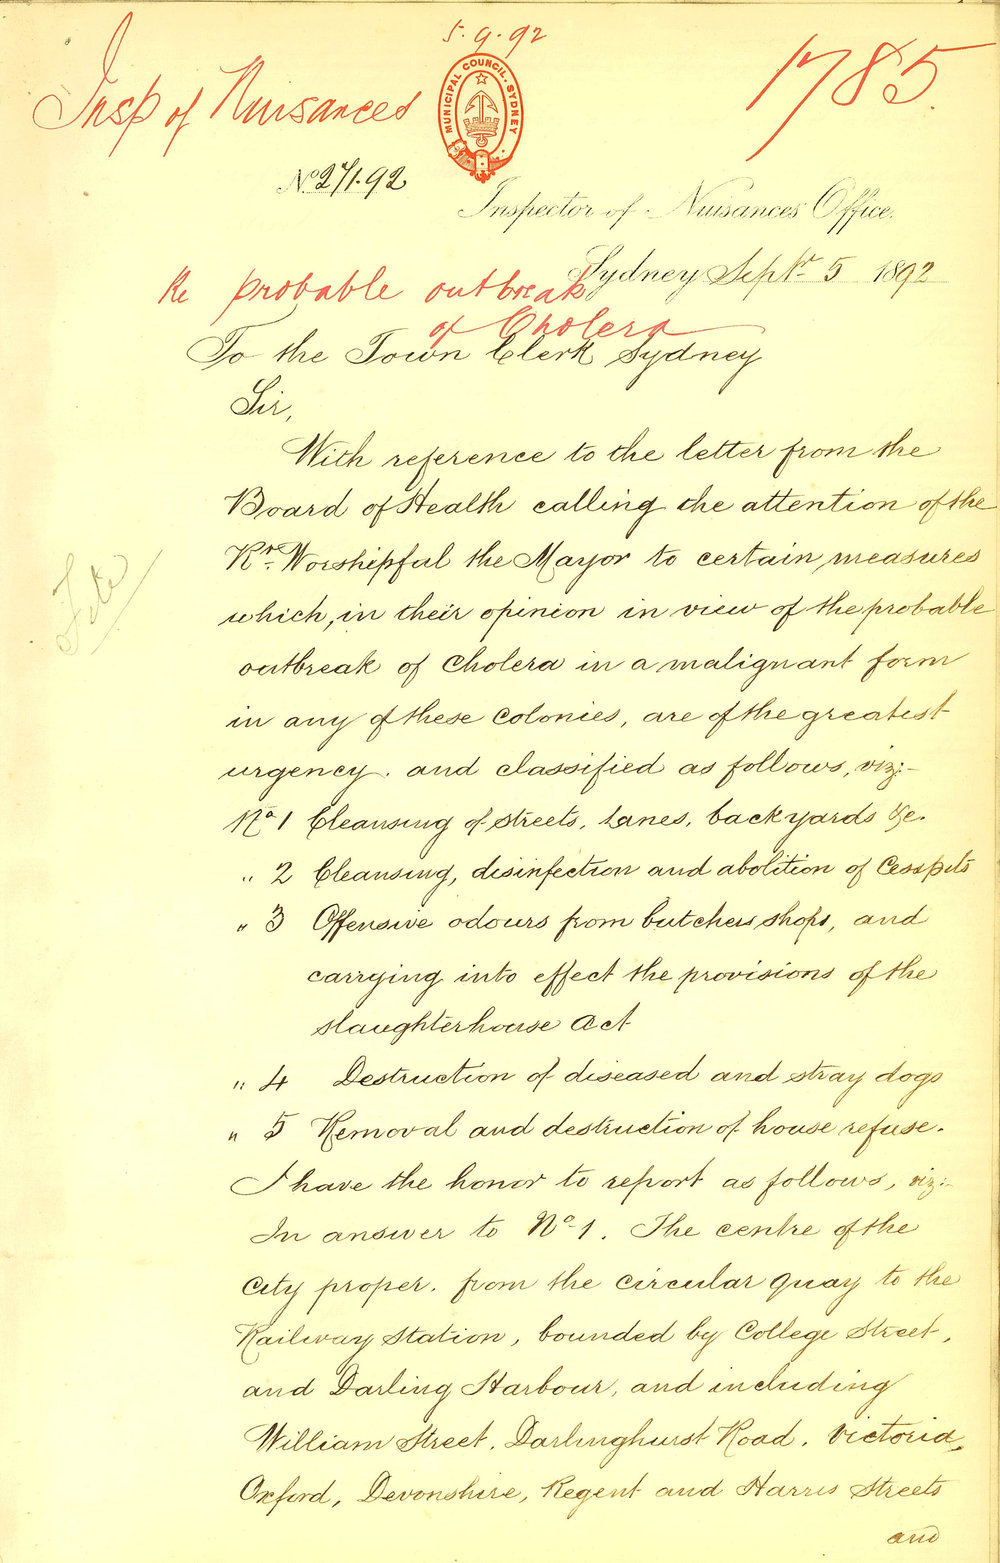 5.9.92
Insp of Nuisances
1785.
MUNICIPAL COUNCIL. SYDNEY
No 271.92
Inspector of Nuisances Office.
Sydney Septr. 5 1892
Re probable outbreak
of Cholera
To the Town Clerk Sydney
Sir,
With reference to the letter from the
Board of Health calling the attention of the
Rt. Worshipful the Mayor to certain measures
which, in their opinion in view of the probable
outbreak of Cholera in a malignant form
in any of these Colonies, are of the greatest
urgency. and classified as follows, viz:-
No 1 Cleansing of streets, Lanes, backyards &c.
" 2 Cleansing, disinfection and abolition of Cesspits
" 3 Offensive odours from butchers shops, and
carrying into effect the provisions of the
slaughterhouse Act
" 4 Destruction of diseased and stray dogs
" 5 Removal and destruction of house refuse.
I have the honor to report as follows, viz:-
In answer to No 1. The centre of the
City proper. from the Circular Quay to the
Railway Station, bounded by College Street,
and Darling Harbour, and including
William Street. Darlinghurst Road. Victoria,
Oxford, Devonshire, Regent and Harris Streets
and
File